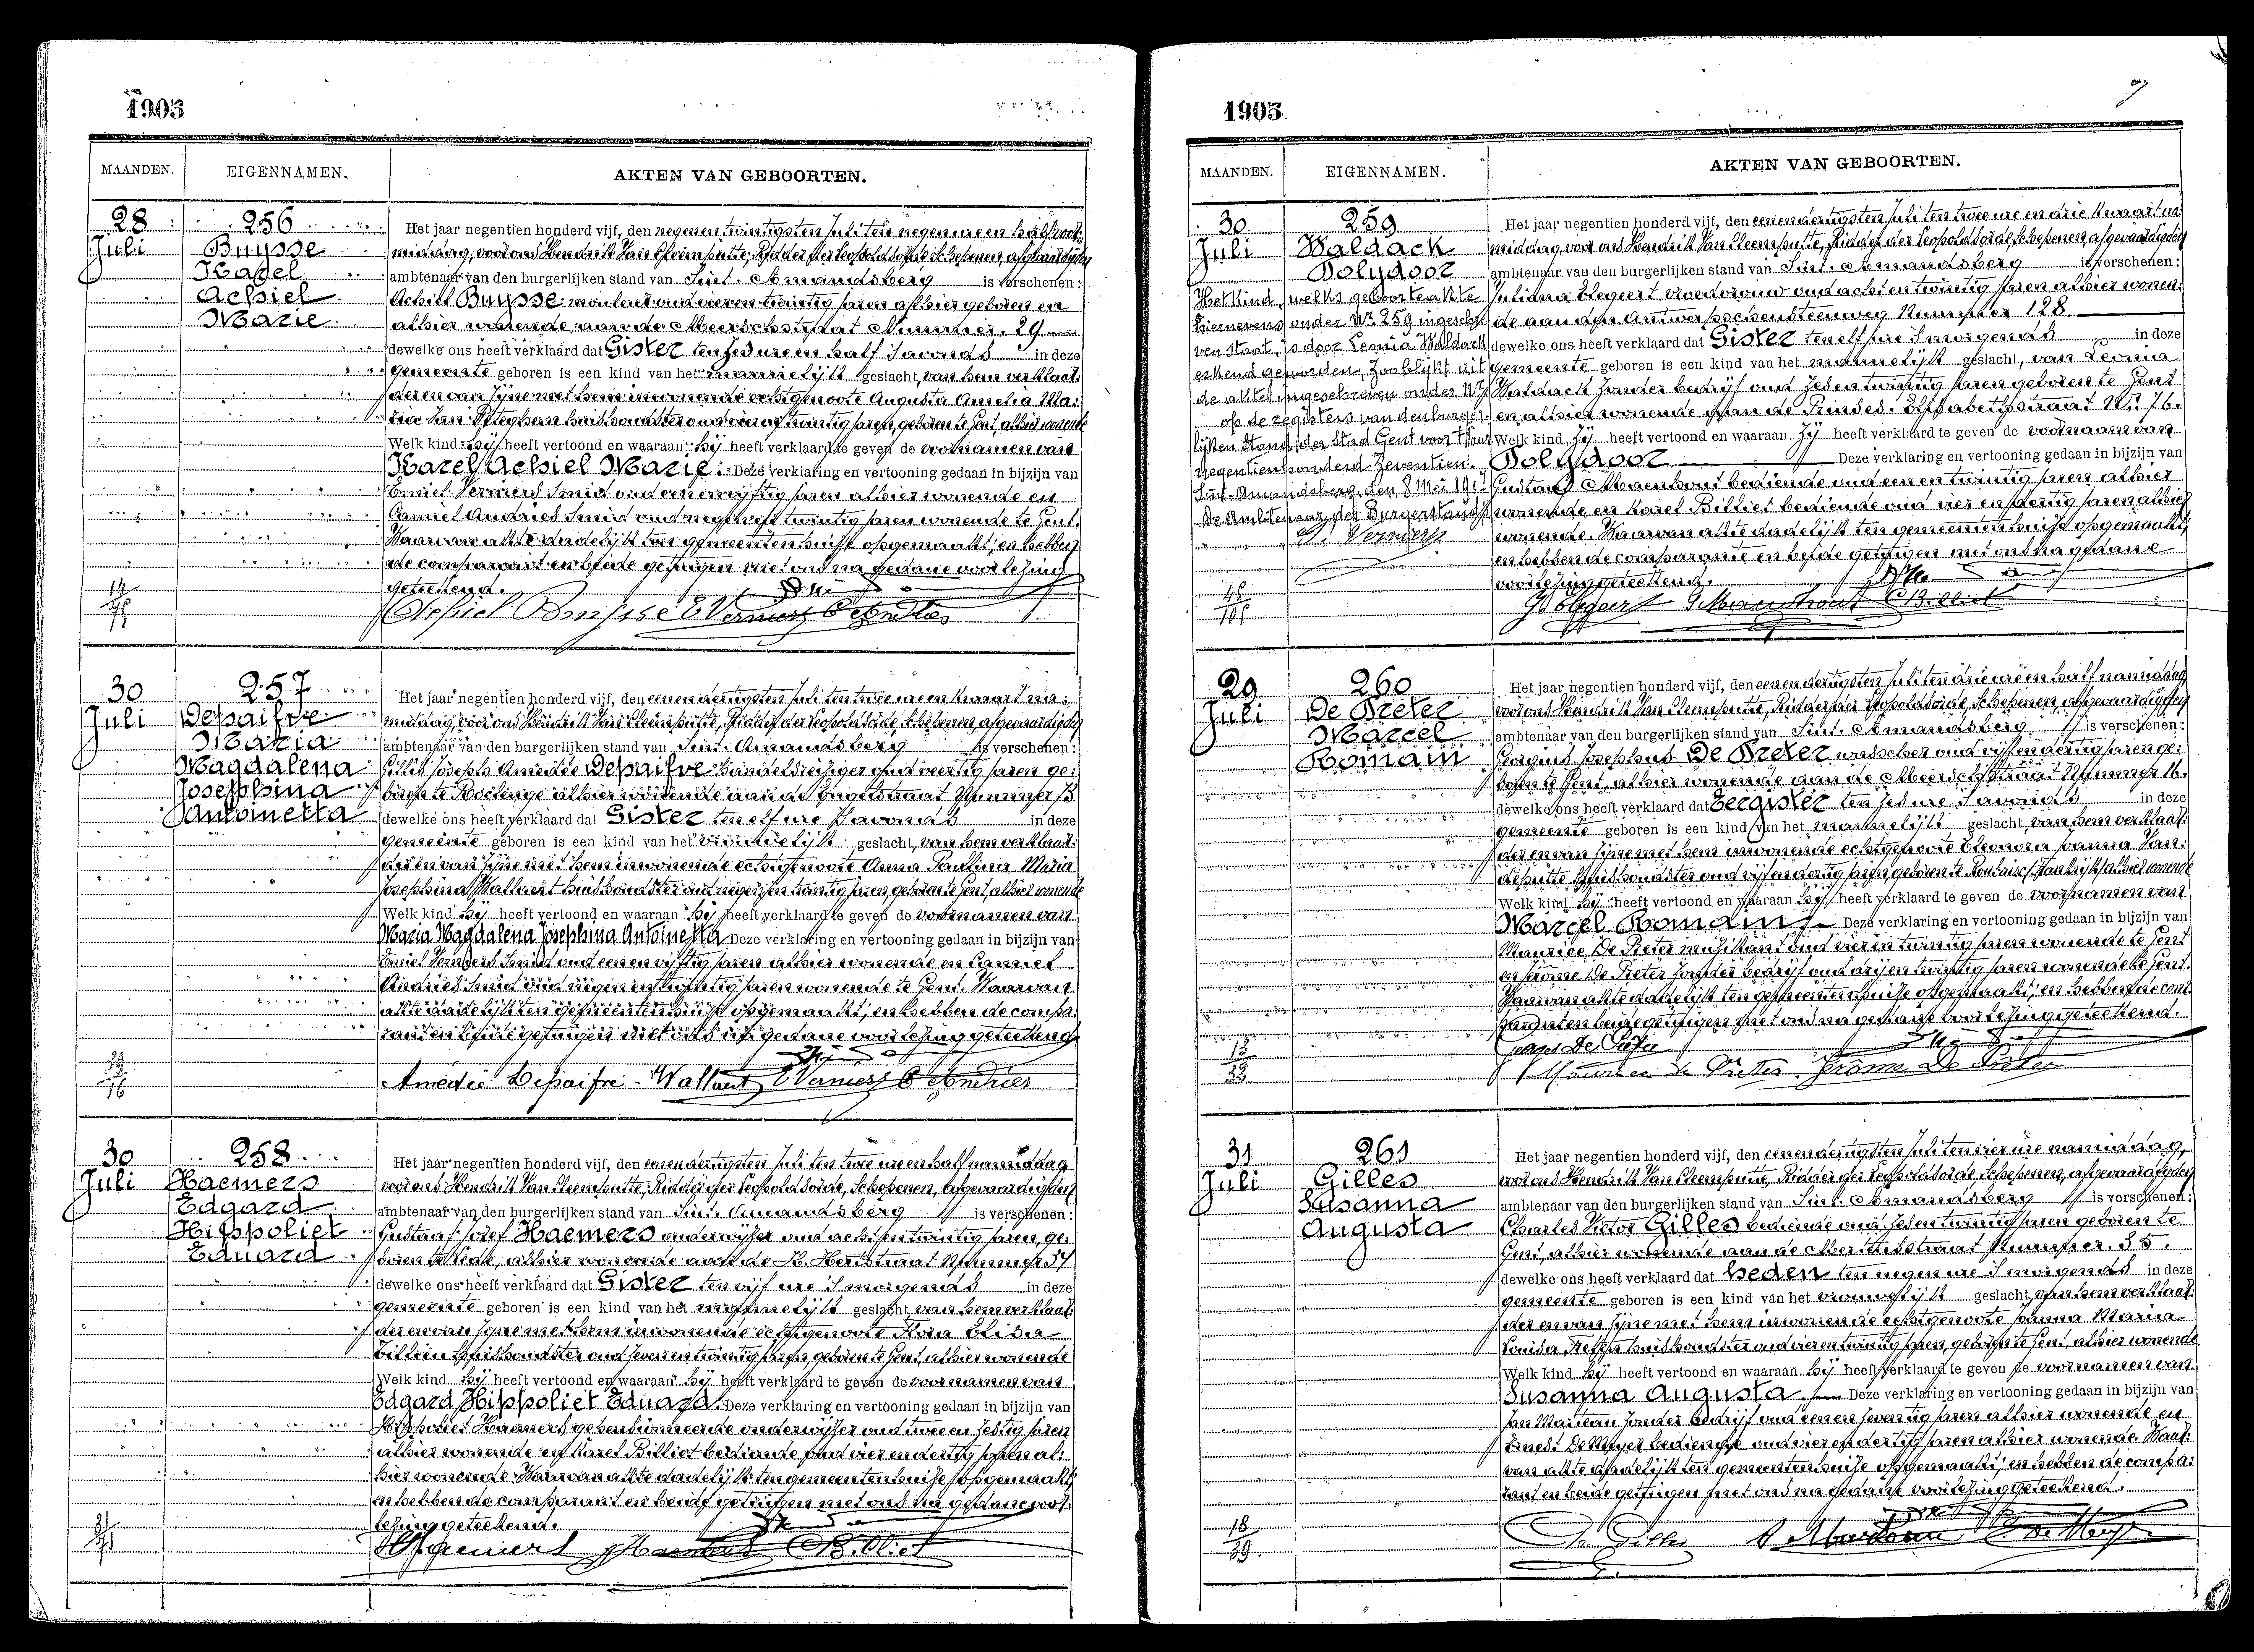 1905
MAANDEN. EIGENNAMEN. AKTEN VAN GEBOORTEN.
28 Juli
256
Buysse
Karel
Achiel
Marie
Het jaar negentien honderd vijf, den negenentwintigsten Juli ten negen ure en half voor:
middag, voor ons Hendrik Van Cleemputte, Ridder der Leopoldsorde, Schepenen, afgevaardigden
ambtenaar van den burgerlijken stand van Sint-Amandsberg is verschenen:
Achiel Buysse mouleur oud vieren twintig jaren alhier geboren en
alhier wonende aan de Meerschstraat Nummer 29
dewelke ons heeft verklaard dat Gister ten zes ure en half 's avonds in deze
gemeente geboren is een kind van het mannelijk geslacht, van hem verklaar:
der en van zijne met hem inwonende echtgenoote Augusta Amelia Ma:
ria Van huishoudster oud vieren twintig jaren, geboren te Gent, alhier wonende
Welk kind hij heeft vertoond en waaraan hij heeft verklaard te geven de voornamen van
Karel Achiel Marie. Deze verklaring en vertooning gedaan in bijzijn van
Emiel Verniers Smid oud een en vijftig jaren alhier wonende en
Camiel Andries Smid oud negen en twintig jaren wonende te Gent.
Waarvan akte dadelijk ten gemeentenhuize opgemaakt, en hebben
de comparant en beide getuigen met ons na gedane voorlezing
geteekend.
Achiel Buysse E Verniers C Andries
14/75
30 Juli
257
Depaifve
Maria
Magdalena
Josephina
Antoinetta
Het jaar negentien honderd vijf, den eenendertigsten Juli ten twee ure en kwaart na:
middag, voor ons Hendrik Van Cleemputte, Ridder der Leopoldsorde, Schepenen, afgevaardigden
ambtenaar van den burgerlijken stand van Sint-Amandsberg is verschenen:
Joseph Amedée Depaifve handelsreiziger oud veertig jaren ge:
boren te Roclenge alhier wonende aan de Engelstraat Nummer 13
dewelke ons heeft verklaard dat Gister ten elf ure 's avonds in deze
gemeente geboren is een kind van het vrouwelijk geslacht, van hem verklaar:
der en van zijne met hem inwonende echtgenoote Anna Paulina Maria
Josephina Wallaert huishoudster oud negen en twintig jaren, geboren te Gent, alhier wonende
Welk kind hij heeft vertoond en waaraan hij heeft verklaard te geven de voornamen van
Maria Magdalena Josephina Antoinetta Deze verklaring en vertooning gedaan in bijzijn van
Emiel Verniers Smid oud een en vijftig jaren alhier wonende en Camiel
Andries Smid oud negen en twintig jaren wonende te Gent. Waarvan
akte dadelijk ten gemeentenhuize opgemaakt, en hebben de compa:
rant en beide getuigen met ons na gedane voorlezing geteekend
Amédée Depaifve-Wallaert E Verniers C Andries
39/16
30 Juli
258
Haemers
Edgard
Hippoliet
Eduard
Het jaar negentien honderd vijf, den eenendertigsten Juli ten twee ure en half namiddag
voor ons Hendrik Van Cleemputte, Ridder der Leopoldsorde, Schepenen, afgevaardigden
ambtenaar van den burgerlijken stand van Sint-Amandsberg is verschenen:
Gustaaf Jozef Haemers onderwijzer oud acht en twintig jaren, ge:
boren te alhier wonende aan de H. Hertstraat Nummer 37
dewelke ons heeft verklaard dat Gister ten vijf ure 's morgends in deze
gemeente geboren is een kind van het mannelijk geslacht van hem verklaar:
der en van zijne met hem inwonende echtgenoote Flora Elisa
huishoudster oud zeven en twintig jaren, geboren te Gent, alhier wonende
Welk kind hij heeft vertoond en waaraan hij heeft verklaard te geven de voornamen van
Edgard Hippoliet Eduard. Deze verklaring en vertooning gedaan in bijzijn van
Hippoliet Haemers gepensionneerde onderwijzer oud twee en zestig jaren
alhier wonende en Karel Billiet bediende oud vier en dertig jaren al:
hier wonende. Waarvan akte dadelijk ten gemeentenhuize opgemaakt,
en hebben de comparant en beide getuigen met ons na gedane voor:
lezing geteekend.
Haemers Haemers Billiet
1905
MAANDEN. EIGENNAMEN. AKTEN VAN GEBOORTEN.
30 Juli
259
Waldack
Polydoor
Het kind, welks geboorteakte
hiernevens onder Nr. 259 ingeschre
ven staat, is door Leonia Waldack
erkend geworden, Zoo blijkt uit
de akte ingeschreven onder Nr.
op de registers van den burger:
lijken Stand der Stad Gent voor 't jaar
negentienhonderd Zeventien.
Sint-Amandsberg, den 8 Mei 191
De Ambtenaar des Burgerstands,
Verniers
Het jaar negentien honderd vijf, den eenendertigsten Juli ten twee ure en drie kwaart na:
middag, voor ons Hendrik Van Cleemputte, Ridder der Leopoldsorde, Schepenen, afgevaardigden
ambtenaar van den burgerlijken stand van Sint-Amandsberg is verschenen:
Juliana vroedvrouw oud acht en twintig jaren alhier wonen:
de aan den Antwerpschensteenweg Nummer 128
dewelke ons heeft verklaard dat Gister ten elf ure 's morgends in deze
gemeente geboren is een kind van het mannelijk geslacht, van Leonia
Waldack zonder bedrijf oud zes en twintig jaren geboren te Gent
en alhier wonende aan de Prinses Elisabethstraat Nr. 76.
Welk kind zij heeft vertoond en waaraan zij heeft verklaard te geven de voornaam van
Polydoor Deze verklaring en vertooning gedaan in bijzijn van
Gustaaf Maenhout bediende oud een en twintig jaren alhier
wonende en Karel Billiet bediende oud vier en dertig jaren alhier
wonende. Waarvan akte dadelijk ten gemeentenhuize opgemaakt,
en hebben de comparante en beide getuigen met ons na gedane
voorlezing geteekend.
G Maenhout C Billiet
29 Juli
260
De Preter
Marcel
Romain
Het jaar negentien honderd vijf, den eenendertigsten Juli ten drie ure en half namiddag
voor ons Hendrik Van Cleemputte, Ridder der Leopoldsorde, Schepenen, afgevaardigden
ambtenaar van den burgerlijken stand van Sint-Amandsberg is verschenen:
Georgius Josephus De Preter wasscher oud vijf en dertig jaren ge:
boren te Gent, alhier wonende aan de Meerschstraat Nummer 16.
dewelke ons heeft verklaard dat Eergister ten zes ure 's avonds in deze
gemeente geboren is een kind van het mannelijk geslacht, van hem verklaar:
der en van zijne met hem inwonende echtgenoote Eleonora Joanna Van:
deputte huishoudster oud vijf en dertig jaren, geboren te Roubaix (Frankrijk) alhier wonende
Welk kind hij heeft vertoond en waaraan hij heeft verklaard te geven de voornamen van
Marcel Romain. Deze verklaring en vertooning gedaan in bijzijn van
Maurice De Preter muzikant oud vier en twintig jaren wonende te Gent
en Jérôme De Preter zonder bedrijf oud drij en twintig jaren wonende te Gent.
Waarvan akte dadelijk ten gemeentenhuize opgemaakt, en hebben de com:
parant en beide getuigen met ons na gedane voorlezing geteekend.
De Preter
Maurice De Preter Jérôme De Preter
13/32
31 Juli
261
Gilles
Susanna
Augusta
Het jaar negentien honderd vijf, den eenendertigsten Juli ten vier ure namiddag,
voor ons Hendrik Van Cleemputte, Ridder der Leopoldsorde, Schepenen, afgevaardigden
ambtenaar van den burgerlijken stand van Sint-Amandsberg is verschenen:
Charles Victor Gilles bediende oud zes en twintig jaren geboren te
Gent, alhier wonende aan de Nummer 35.
dewelke ons heeft verklaard dat heden ten negen ure 's morgends in deze
gemeente geboren is een kind van het vrouwelijk geslacht, van hem verklaar:
der en van zijne met hem inwonende echtgenoote Joanna Maria
Louisa huishoudster oud vier en twintig jaren, geboren te Gent, alhier wonende
Welk kind hij heeft vertoond en waaraan hij heeft verklaard te geven de voornamen van
Susanna Augusta. Deze verklaring en vertooning gedaan in bijzijn van
Jan zonder bedrijf oud een en zeventig jaren alhier wonende en
Ernest De Meyer bediende oud vier en dertig jaren alhier wonende. Waar:
van akte dadelijk ten gemeentenhuize opgemaakt, en hebben de compa:
rant en beide getuigen met ons na gedane voorlezing geteekend.
Ch Gilles E De Meyer
18/39